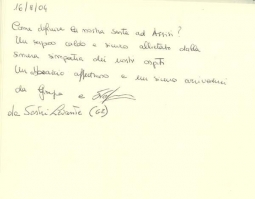 16/8/04
Come definire la nostra sosta ad Assisi?
Un sapore caldo e sincero allietato dalla
sincera simpatia dei nostri ospiti
Un abbraccio affettuoso e un sicuro arrivederci
da Grupo e
da Sestri Levante (GE)